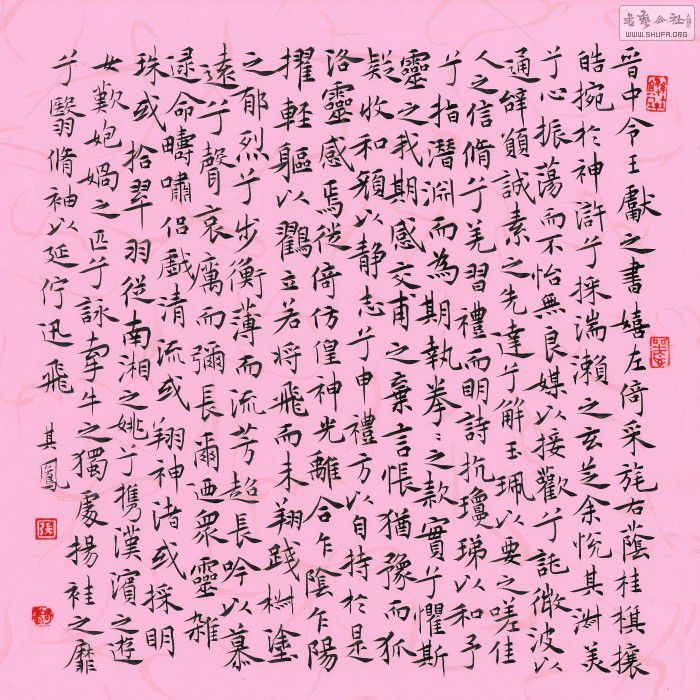 晋中令王獻之書嬉左倚采旄右蔭桂棋攘
皓捥於神滸兮採湍瀨之玄芝余悅其淑美
兮心振蕩而不怡無良媒以接歡兮託微波以
通辭願誠素之先達兮解玉珮以要之嗟佳
人之信脩兮羌習禮而明詩抗瓊珶以和予
兮指潛淵而為期執拳〻之款實兮懼斯
靈之我期感交甫之棄言悵猶豫而狐
疑收和顏以静志兮申禮方以自持於是
洛靈感焉徙倚仿偟神光離合乍陰乍陽
擢輕軀以鸖立若將飛而未翔踐椒塗
之郁烈兮步衡薄而流芳超長吟以慕
遠兮聲哀厲而彌長爾迺衆靈雜
遝命疇嘯侶戲清流或翔神渚或採明
珠或拾翠羽從南湘之姚兮攜漢濱之遊
女歎匏媧之匹兮詠牽牛之獨處揚袿之靡
兮翳脩袖以延佇迅飛 其鳳
书艺公社
WWW.SHUFA.ORG